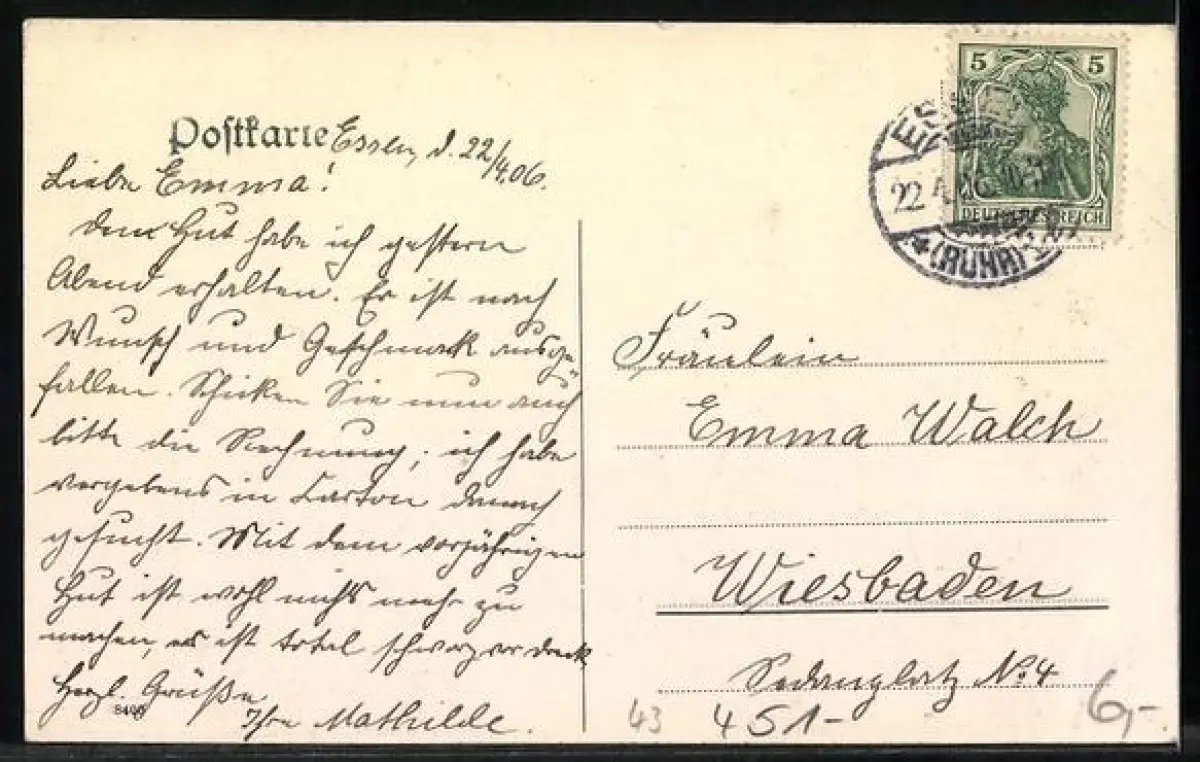 Postkarte
Essen, d. 22/4.06.
Liebe Emma!
Den Hut habe ich gestern
Abend erhalten. Er ist nach
Wunsch und Geschmack ausge
fallen. Schicken Sie nun auch
bitte die Rechnung, ich habe
vergebens in Carton danach
gesucht. Mit dem vorjährigen
Hut ist wohl nichts mehr zu
machen, er ist total schwarz vor Dreck
Herzl. Grüße
Ihre Mathilde.
8460
5 5
DEUTSCHES REICH
ESSEN
22.4.06
* (RUHR) 1
Fräulein
Emma Walch
Wiesbaden
Sedanplatz No. 4
43
451-
6,-